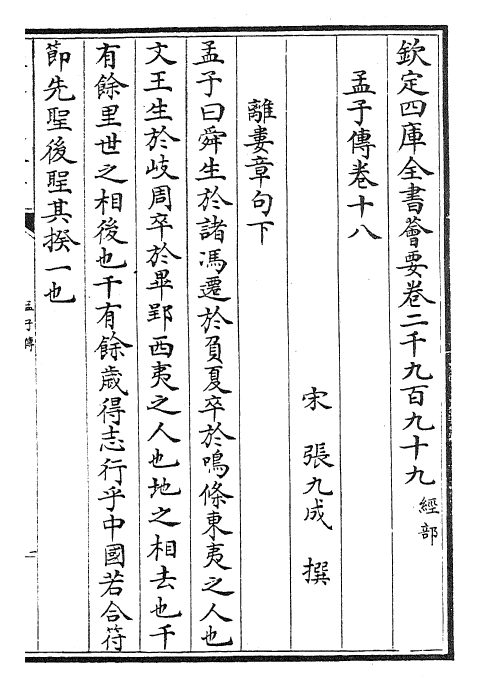 欽定四庫全書薈要卷二千九百九十九經部
孟子傳卷十八
宋張九成撰
離婁章句下
孟子曰舜生於諸馮遷於負夏卒於鳴條東夷之人也
文王生於岐周卒於畢郢西夷之人也地之相去也千
有餘里世之相後也千有餘歲得志行乎中國若合符
節先聖後聖其揆一也
孟子傳